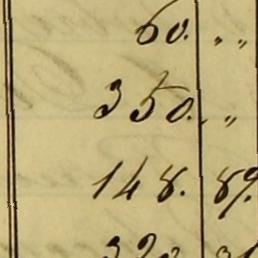 60. „ „
350. „
148. 89.